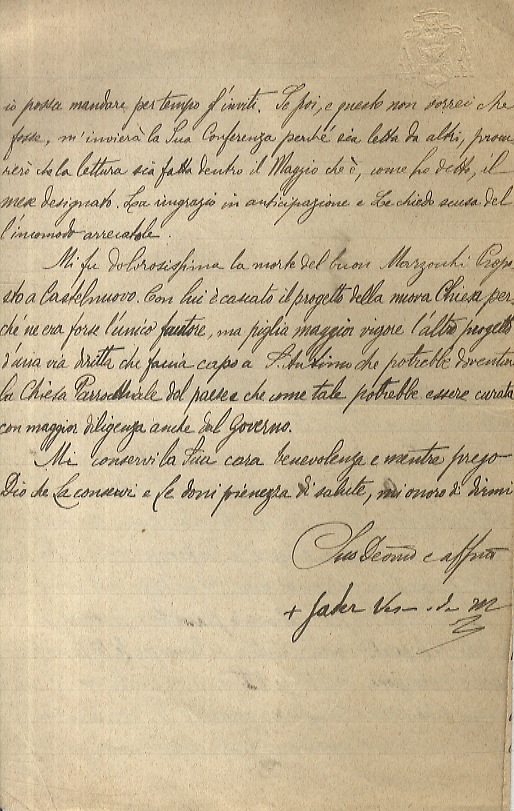 io possa mandare per tempo gl'inviti. Se poi, e questo non vorrei che
fosse, m'invierà la Sua Conferenza perché sia letta da altri, procu
rerò che la lettura sia fatta dentro il Maggio che è, come ho detto, il
mese designato. La ringrazio in anticipazione e Le chiedo scusa del
l'incomodo arrecatole.
Mi fu dolorosissima la morte del buon Marzocchi Propo
sto a Castelnuovo. Con lui è cascato il progetto della nuova Chiesa per
ché ne era forse l'unico fautore, ma piglia maggior vigore l'altro progetto
d'una via diritta che faccia capo a S. Antimo che potrebbe diventar
la Chiesa Parrochiale del paese e che come tale potrebbe essere curata
con maggior diligenza anche dal Governo.
Mi conservi la Sua cara benevolenza e mentre prego
Dio che La conservi e Le doni pienezza di salute, mi onoro di dirmi
Suo Devmo e affmo
+ Jader